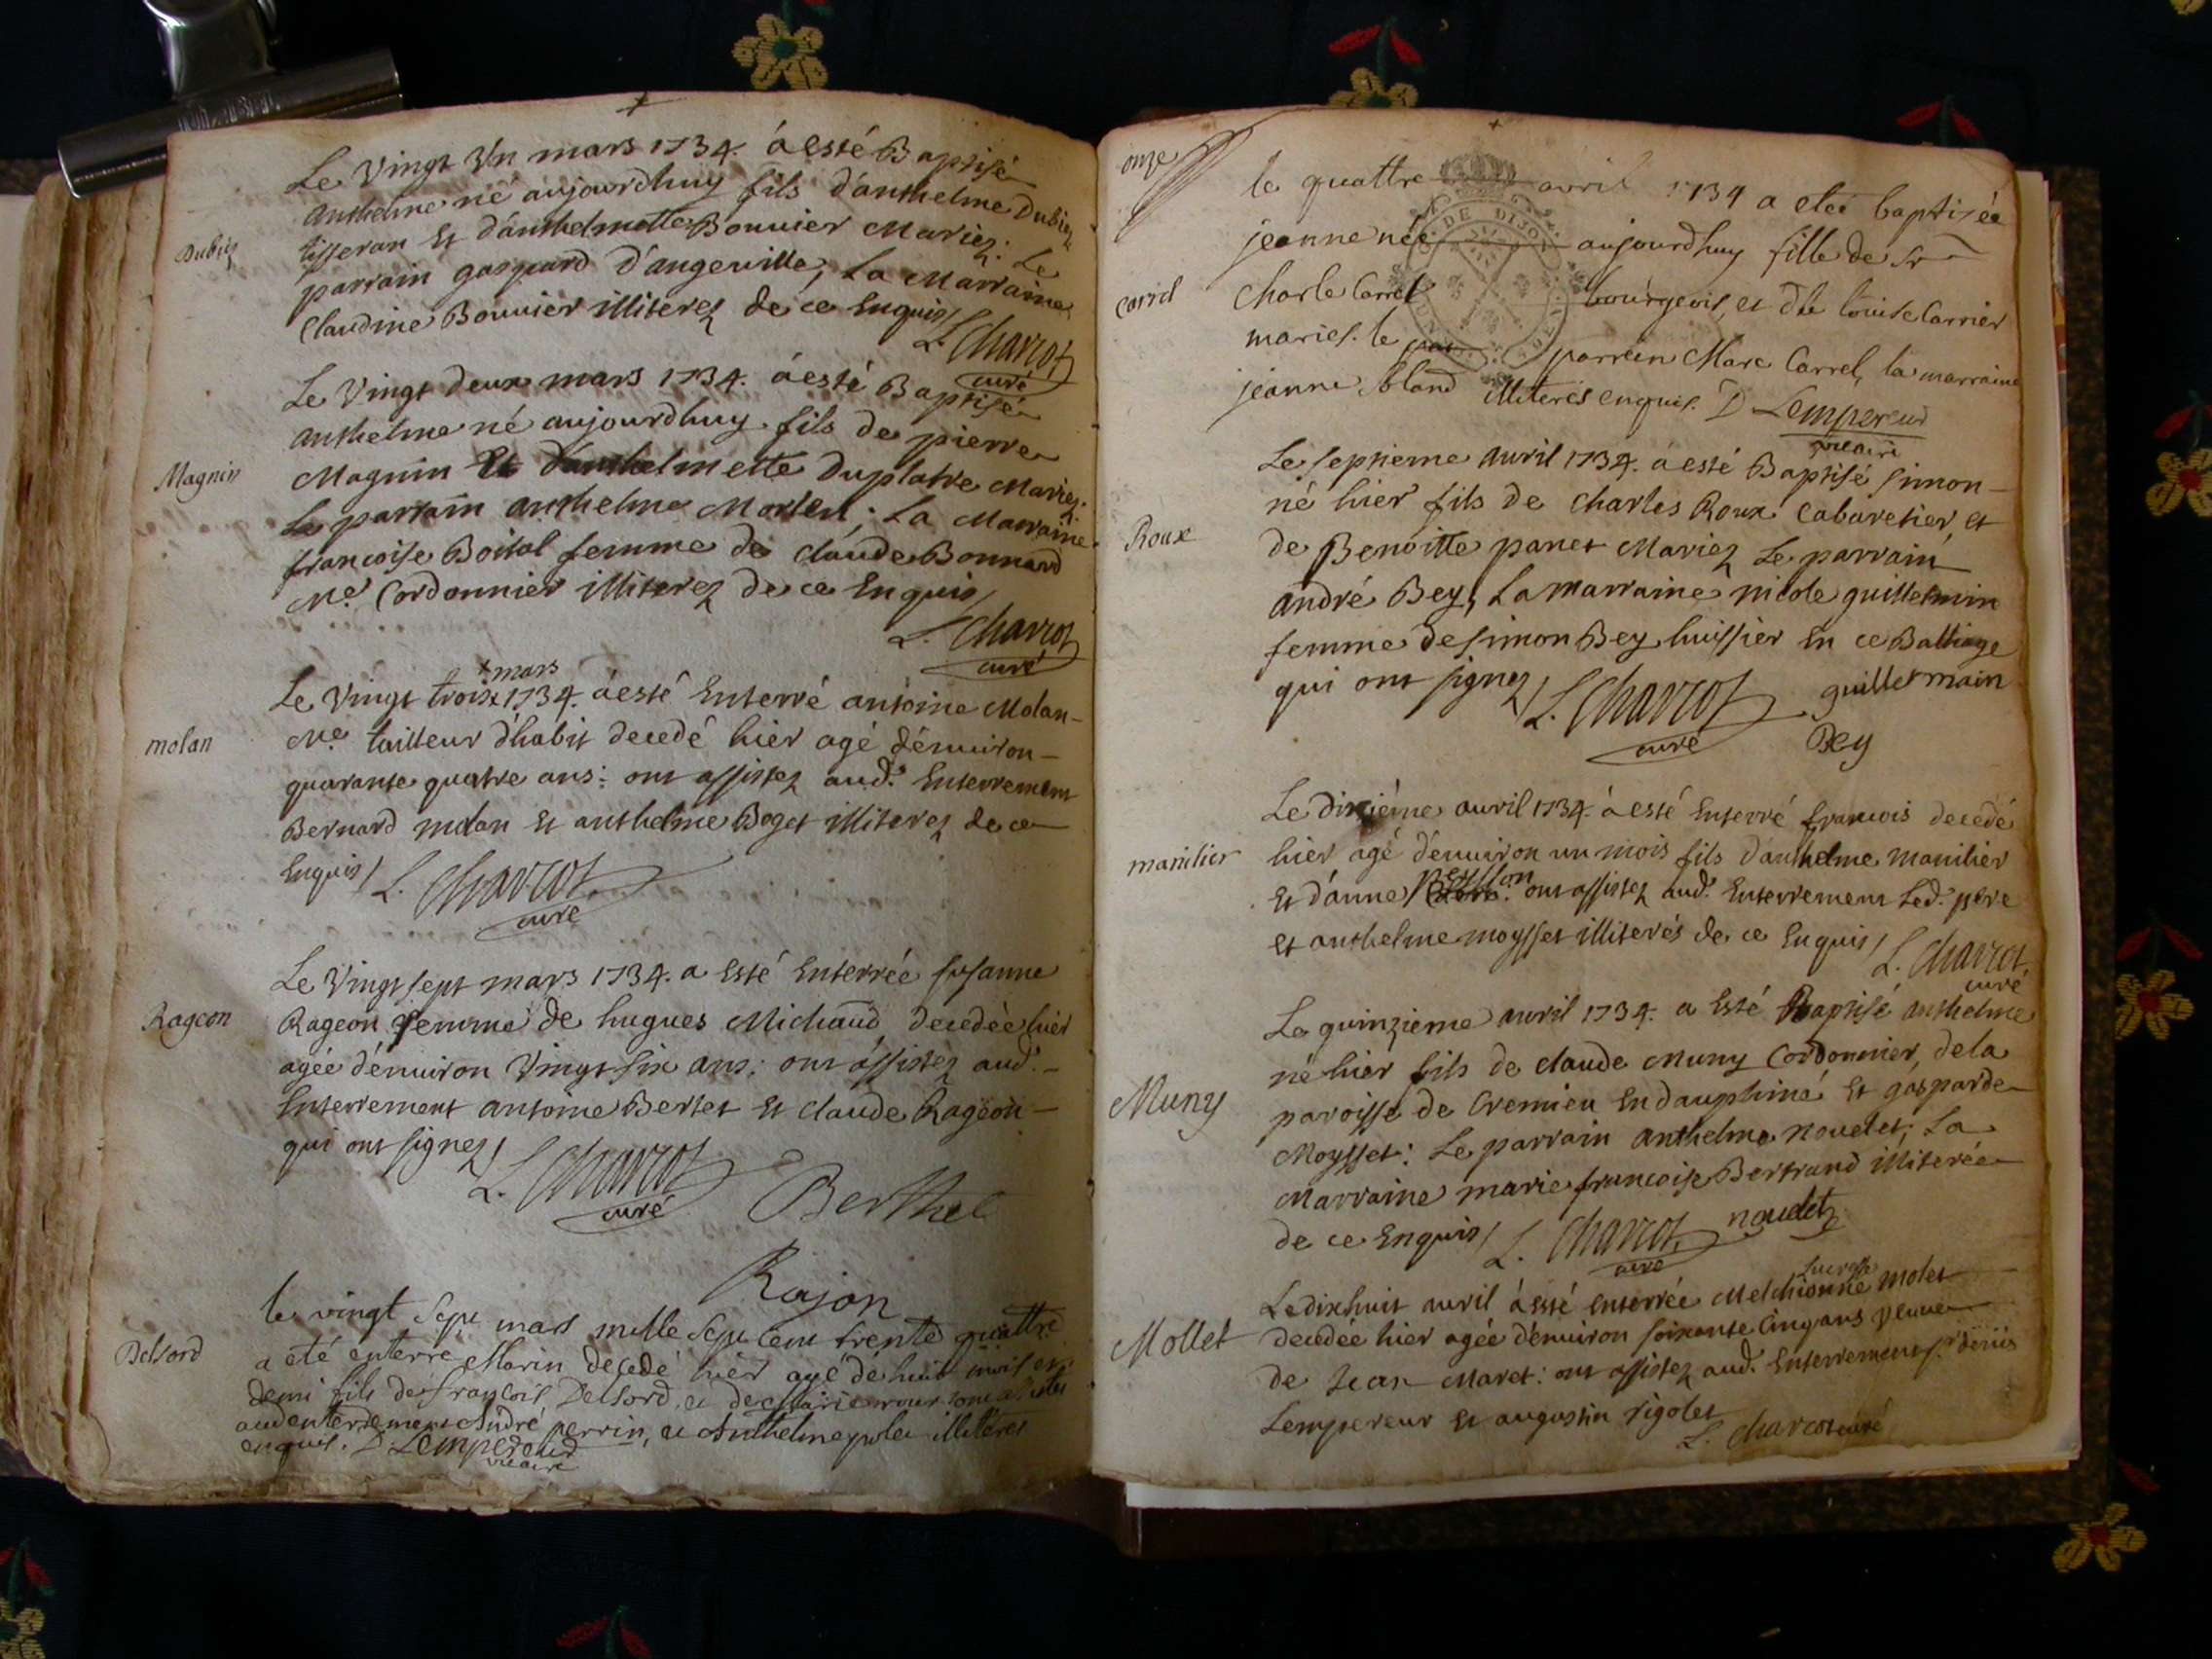 Le Vingt Un mars 1734. á esté Baptisé
anthelme né aujourdhuy fils d'anthelme Dubiez
Dubiez
tisseran Et d'anthelmette Bouuier Mariez. Le
parrain gaspard d'angeuille, La Marraine
Claudine Bouuier illiterez de ce Enquis /
L. Charcot
curé
Le Vingt deux mars 1734. á esté Baptisé
anthelme né aujourdhuy fils de pierre
Magnin
Magnin Et d'anthelmette Duplatre Mariez.
Le parrain anthelme Mortel; La Marraine
francoise Boital femme de claude Bonnard
Me. Cordonnier illiterez de ce Enquis /
L. Charcot
curé
+ mars
Le Vingt trois + 1734. á esté Enterré antoine Molan
molan
Me. tailleur d'habit decedé hier agé d'enuiron
quarante quatre ans: ont assistez aud. Enterrement
Bernard molan Et anthelme Boget illiterez de ce
Enquis / L. Charcot
curé
Le Vingt sept mars 1734. a Esté Enterrée susanne
Rageon
Rageon femme de hugues Michaud decedée hier
agée d'enuiron Vingt six ans: ont assistez aud.
Enterrement antoine Bertet Et claude Rageon
qui ont signez / L. Charcot
curé
Berthet
Rajon
le vingt sept mars mille sept cent trente quattre
Delsord
a eté enterré Marin decedé hier agé de huit mois et
demi fils de francois Delsord, et de Marie roux sont assistes
aud enterrement André perrin, et Anthelme polet illiteres
enquis. D Lempereur
vicaire
onze
le quattre avril 1734 a eteé baptisée
jeanne née aujourdhuy fille de Sr
DE DIJON
Carrel
Charle Carrel bourgeois, et dlle louise Carrier
mariés. le parrein Marc Carrel, la marraine
jeanne bland illiterés enquis. D Lempereur
vicaire
Le septieme auril 1734. á esté Baptisé simon
né hier fils de charles Roux Cabaretier, et
Roux
de Benoitte panet Mariez Le parrain
andré Bey, La marraine nicole guillermin
femme de simon Bey huissier En ce Balliage
qui ont signez / L. Charcot
curé
guillermain
Bey
Le dixiéme auril 1734. á esté Enterré francois decedé
manilier
hier agé d'enuiron un mois fils d'anthelme manilier
Et d'anne ont assistez aud. Enterrement Led. pere
et anthelme moysset illiterés de ce Enquis / L. Charcot
curé
Le quinzieme auril 1734. a Esté Baptisé anthelme
né hier fils de claude Muny Cordonnier, de la
Muny
paroisse de Cremieu En dauphiné Et gasparde
Moysset: Le parrain anthelme noudet; La
Marraine marie francoise Bertrand illiterée
de ce Enquis / L. Charcot noudet
curé
Le dixhuit auril á esté enterrée Melchionne molet
Mollet
decedée hier agée d'enuiron soixante Cinq ans veuue
de Jean Maret: ont assistez aud. Enterrement sr. denis
Lempereur Et augustin rigolet
L. Charcot curé